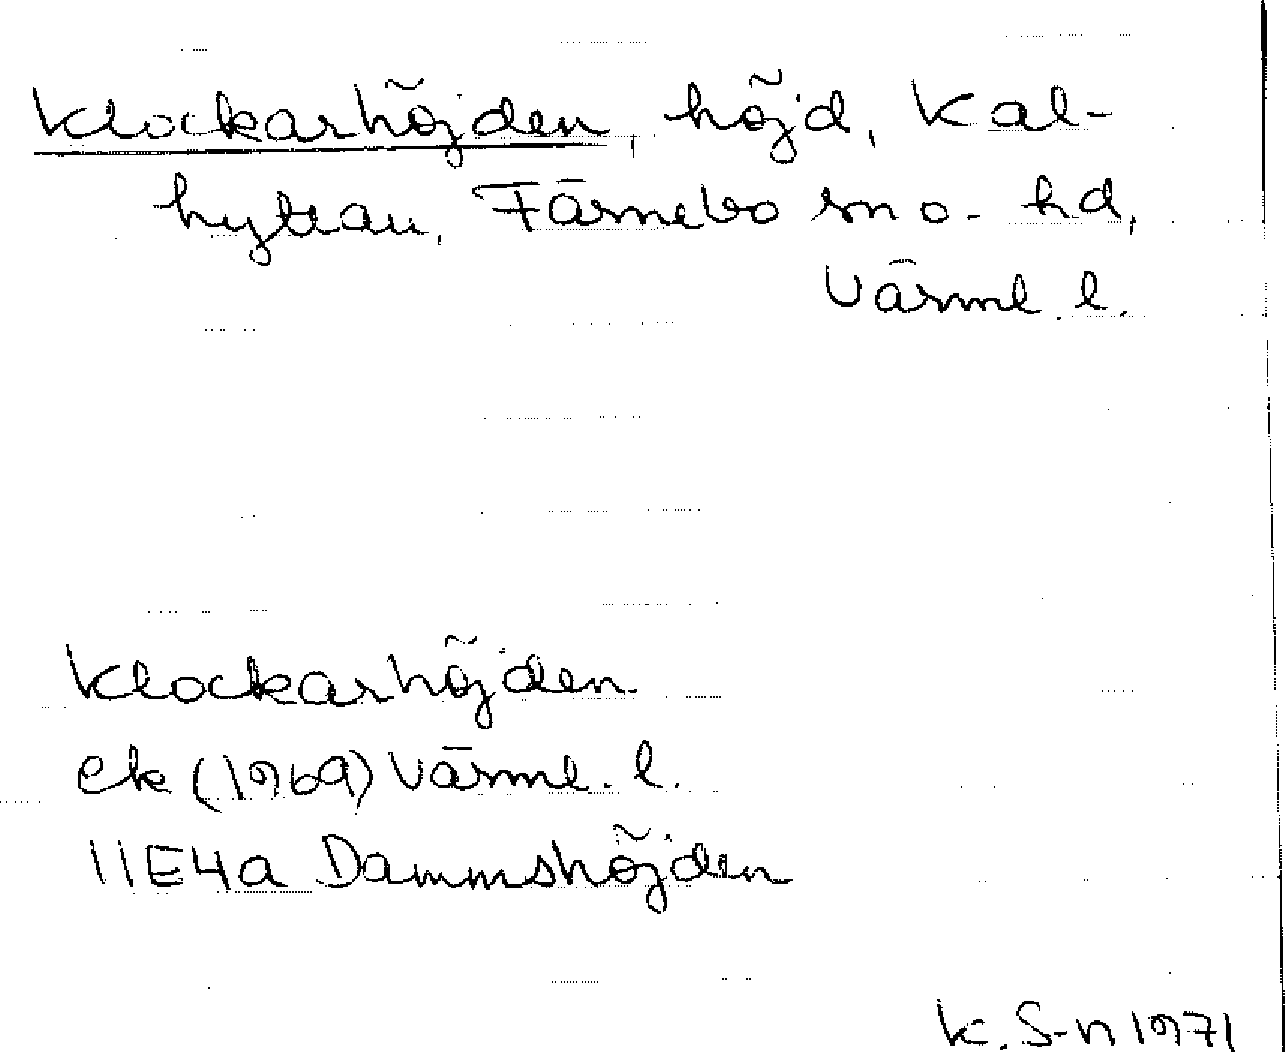 Klockarhöjden, höjd, Kal-
hyttan, Färnebo sn o. hd,
Värml. l.
Klockarhöjden
ek (1969) Värml. l.
11E4a Dammshöjden
K. S-n 1971